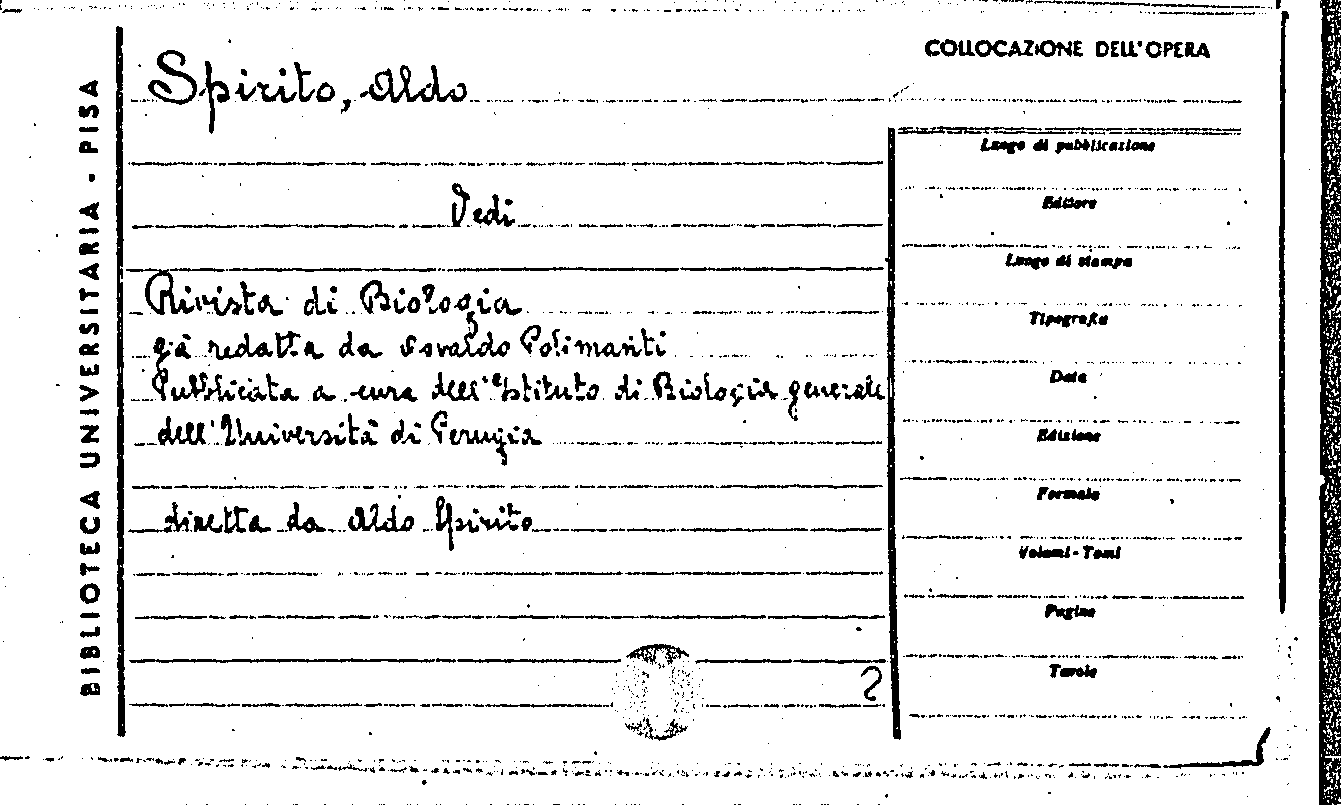 BIBLIOTECA UNIVERSITARIA - PISA
COLLOCAZIONE DELL'OPERA
Spirito, Aldo
Vedi
Rivista di Biologia
già redatta da Osvaldo Polimanti
Pubblicata a cura dell'Istituto di Biologia generale
dell'Università di Perugia
diretta da Aldo Spirito
2
Luogo di pubblicazione
Editore
Luogo di stampa
Tipografia
Data
Edizione
Formato
Volumi - Tomi
Pagine
Tavole